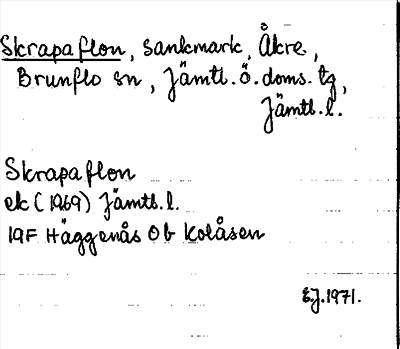 Skrapaflon, sankmark, Åkre,
Brunflo sn, Jämtl.ö.doms.tg,
Jämtl.l.
Skrapaflon
ek (1969) Jämtl.l.
19F Häggenås Ob Kolåsen
E.J.1971.